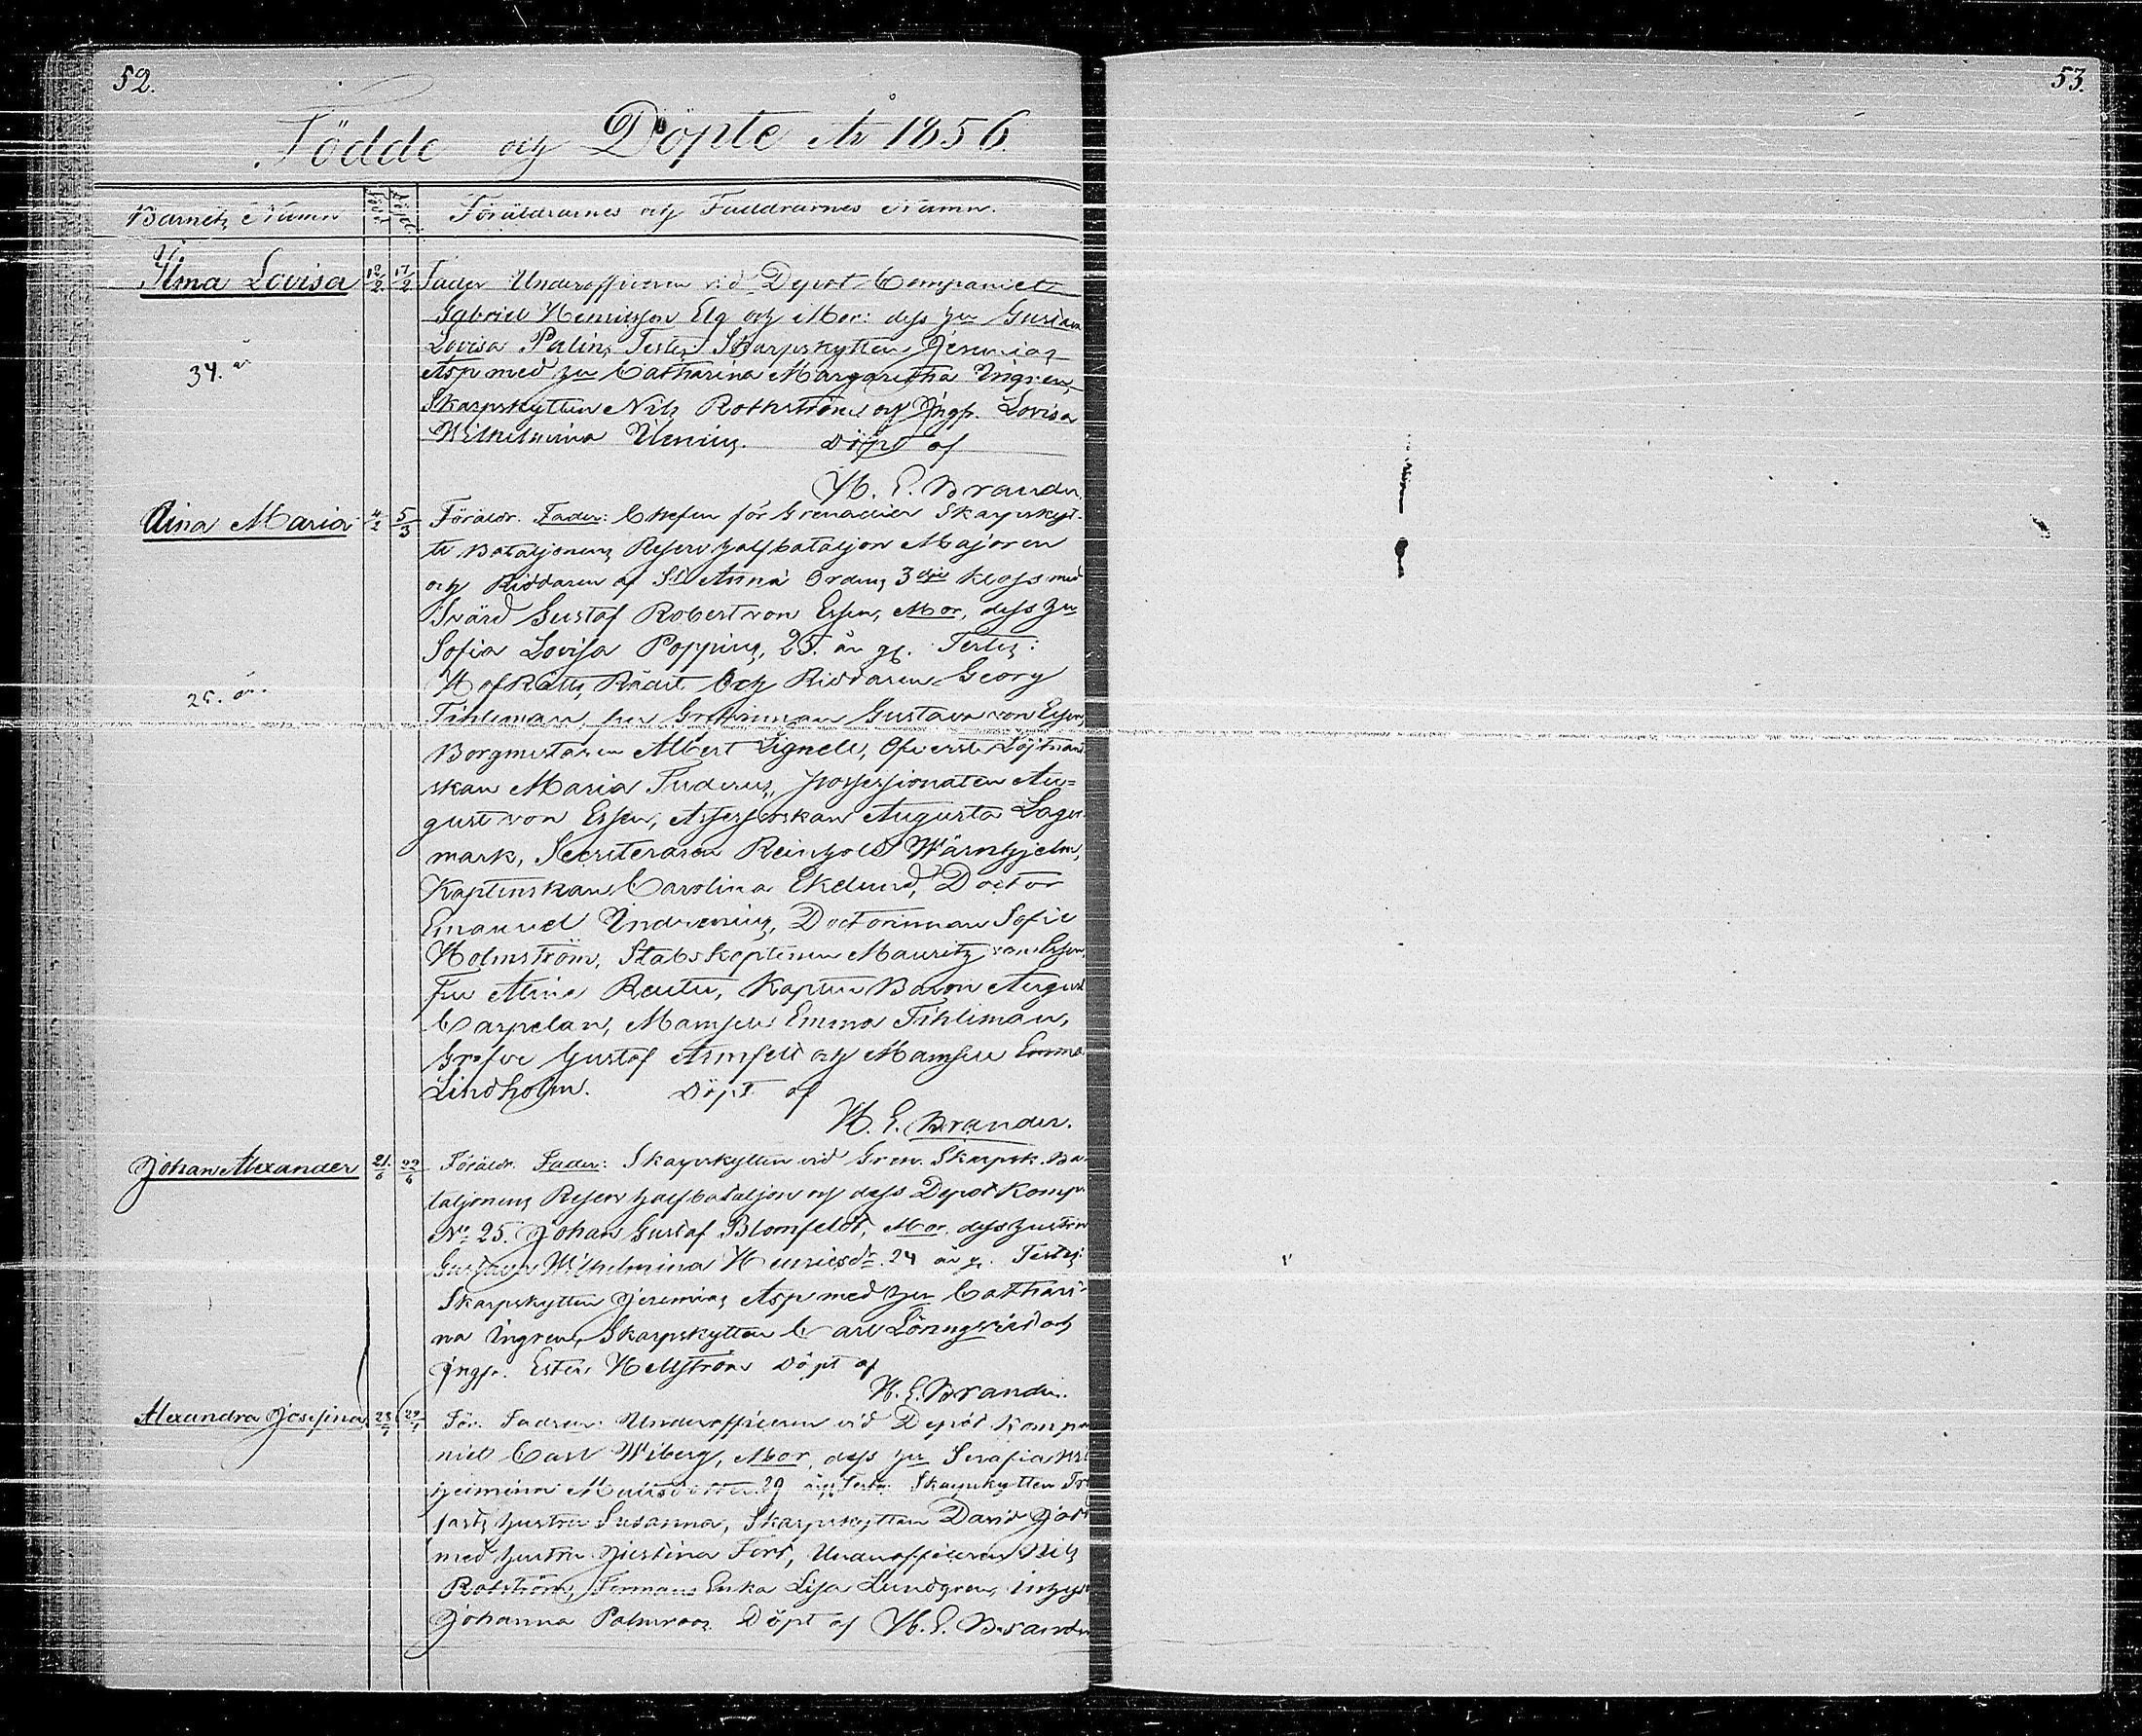 52.
53.
Födde och Döpte År 1856.
Barnets Namn
född
döpt
Föräldrarnes och Faddrarnes Namn.
Ilma Lovisa 12/2 17/2 Fader Underofficeren vid Depot Companiet
Gabriel Henricsson Elg och Mor: dess hu Gustava
Lovisa Palin, Testes Skarpskytten Jeremias
34. år
Asp med hu Catharina Margaretha Ingren,
Skarpskytten Nils Rothström och Jngfr. Lovisa
Wilhelmina Döpt af
H. E. Brander.
Aina Maria 4/2 5/3 Föräldr. Fader: Chefen för Grenadier Skarpskyt-
te Bataljonens Reserv halfbataljon Majoren
och Riddaren af St Anna Ordens 3dje klass med
Svärd Gustaf Robert von Essen, Mor, dess hu
Sofia Lovisa Poppius, 25. år gl. Testes:
25. år.
HofRätts Rådet och Riddaren Georg
Tihleman, fru Grefvinnan Gustava von Essen,
Borgmestaren Albert Lignell, Öfverste Löjtnant
skan Maria Tuderus, possessionaten Au=
gust von Essen, Assessorskan Augusta Lager
mark, Secreteraren Reinhold Wärnhjelm,
Kaptenskan Carolina Eklund, Doctor
Emanuel Indrenius, Doctorinnan Sofie
Holmström, Stabskaptenen Mauritz von Essen,
Fru Alina Reuter, Kapten Baron August
Carpelan, Mamsell Emma Tihleman,
Grefve Gustaf Armfelt och Mamsell Emma
Lindholm. Döpt af
H. E. Brander.
Johan Alexander 21/6 22/6 Föräldr. Fader: Skarpskytten vid Gren. Skarpsk. Ba-
taljonens Reserv halfbataljon och dess Depot Komp.
No 25. Johan Gustaf Blomfeldt, Mor, dess hustru
Gustava Wilhelmina Henricsdr. 24 år g. Testes:
Skarpskytten Jeremias Asp med hu Cathari-
na Ingren, Skarpskytten Carl Löringsköld och
Jngfr. Ester Hellström Döpt af
H. E. Brander.
Alexandra Josefina För. Fadren: Underofficeren vid Depôt Kompa
niet Carl Wiberg, Mor, dess hu Serafia Wil
helmina 29 år, Testes: Skarpskytten
hustru Susanna, Skarpskytten David
med hustru Justina Fört, Underofficeren Nils
Rotström, Enka Lisa Lundgren,
Johanna Palmroos. Döpt af H. E. Brander